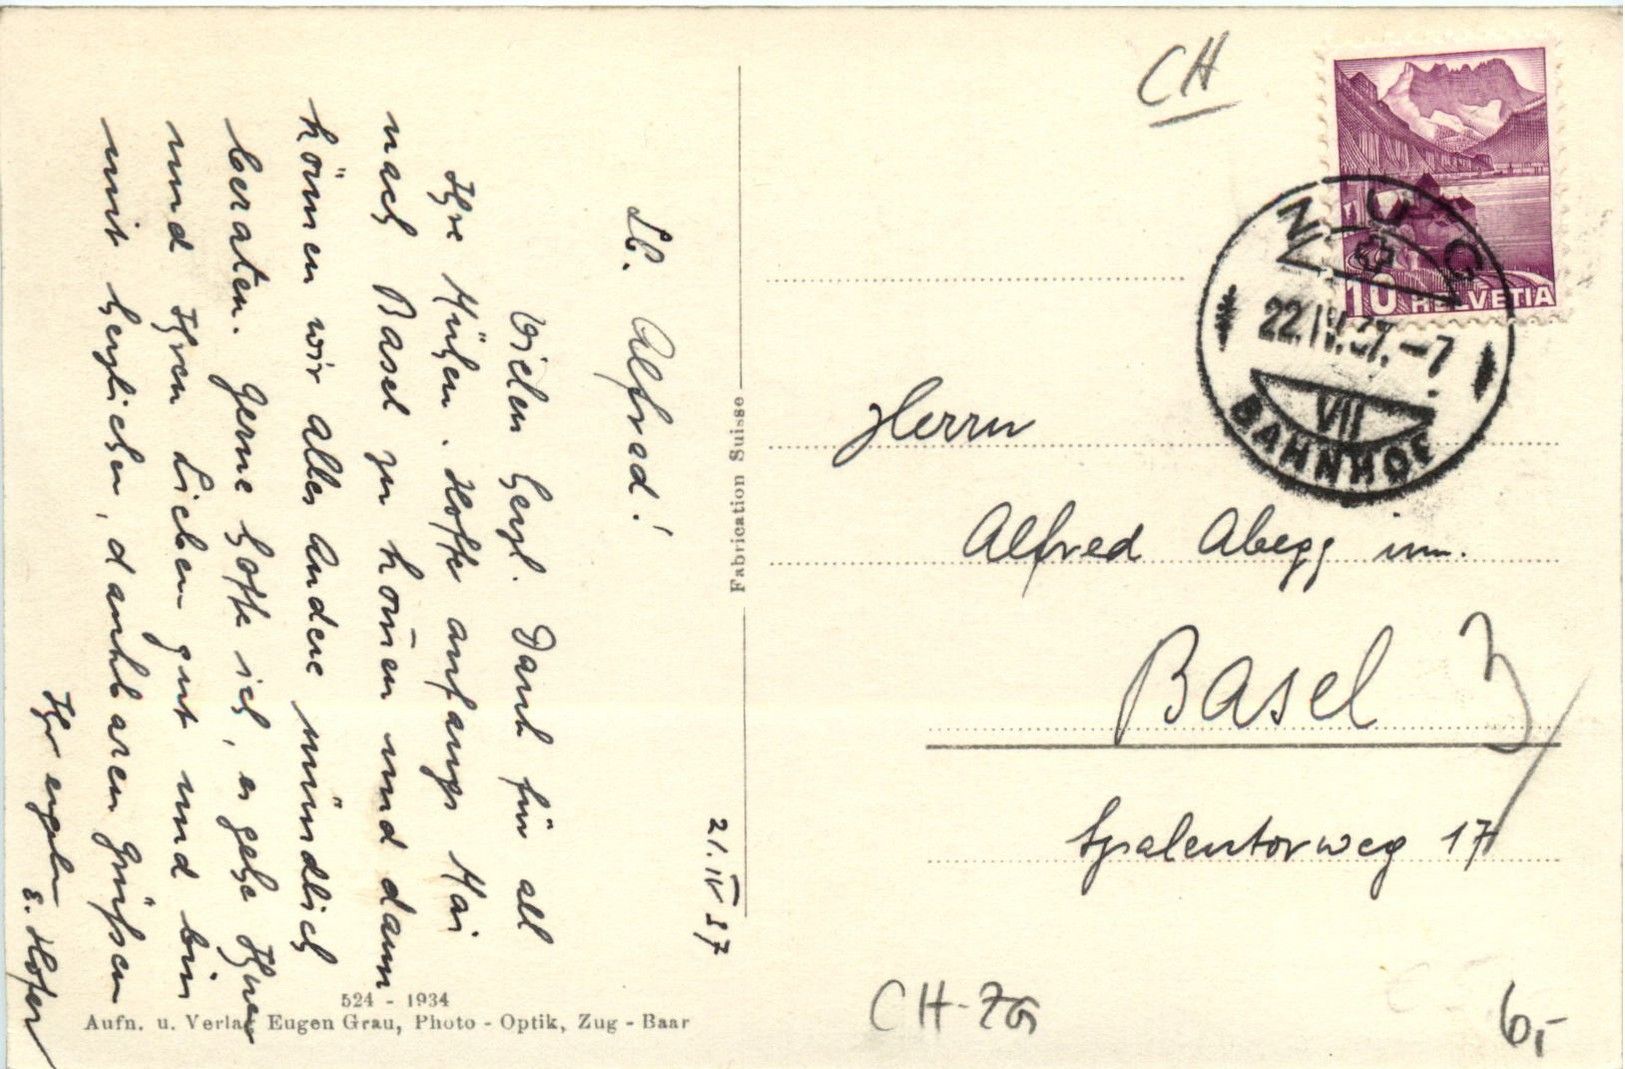 21. IV 37
Lb. Alfred!
Vielen herzl. Dank für all
Ihre Mühen. Hoffe anfangs Mai
nach Basel zu kom̄en und dann
können wir alles Andere mündlich
beraten. Gerne hoffe ich, es gehe Ihnen
und Ihren Lieben gut und bin
mit herzlichen, dankbaren Grüssen
Ihr ergeben
E. Hofer
524 - 1934
Aufn. u. Verlag Eugen Grau, Photo - Optik, Zug - Baar
Fabrication Suisse
CH
10 HELVETIA
ZUG
22.IV.37.-7
VII
BAHNHOF
Herrn
Alfred Abegg jun.
Basel 3
Spalentorweg 17
CH-ZG
6,-